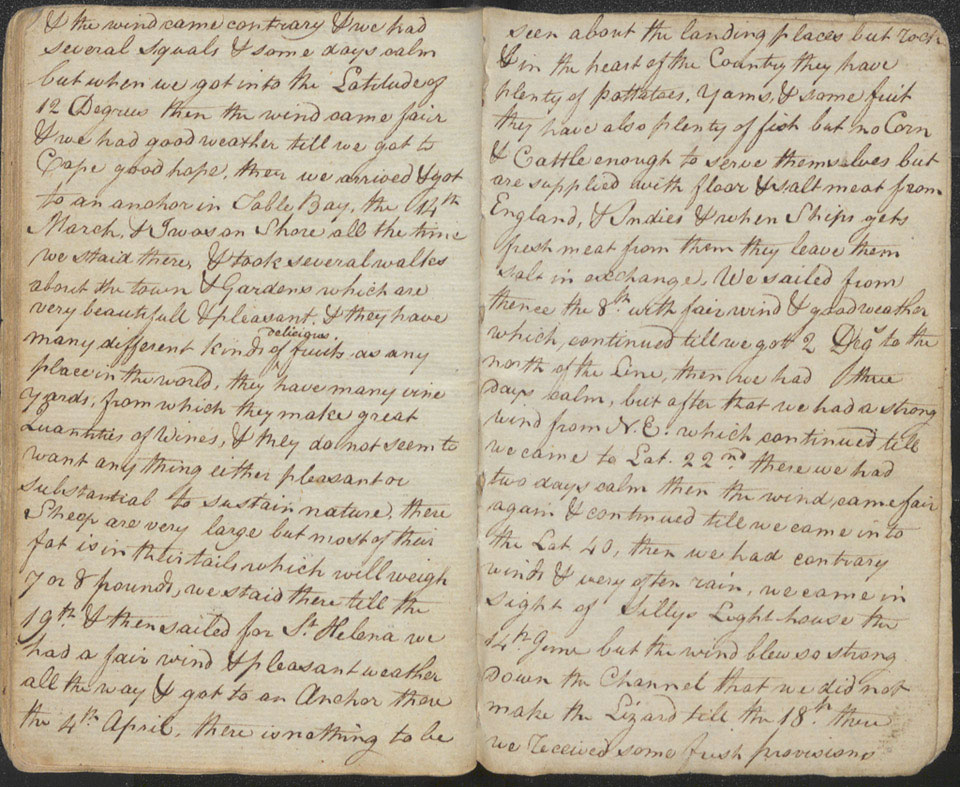 & the wind came contrary & we had
several Squals & some days calm
but when we got into the Latitude of
12 Degrees then the wind came fair
& we had good weather till we got to
Cape good hope, then we arrived & got
to an anchor in Table Bay, the 14th
March, & I was on Shore all the time
we staid there, & took several walks
about the town & Gardens which are
very beautifull & pleasant, & they have
many different kinds of delicius fruits as any
place in the world, they have many vine
yards, from which they make great
Quantities of Wines, & they do not seem to
want any thing either pleasant or
substantial to sustain nature, there
Sheep are very large but most of their
fat is in their tails which will weigh
7 or 8 pounds, we staid there till the
19th & then sailed for St Helena we
had a fair wind & pleasant weather
all the way & got to an Anchor there
the 4th April, there is nothing to be
seen about the landing places but Rock
& in the heart of the Country they have
plenty of pottatoes, Yams, & some fruit
they have also plenty of fish but no Corn
& Cattle enough to serve themselves but
are supplied with floor & salt meat from
England, & Indies & when Ships gets
fresh meat from them they leave them
salt in exchange, We sailed from
thence the 8th with fair wind & good weather
which, continued till we got 2 Degs to the
north of the Line, then we had three
days calm, but after that we had a strong
wind from N.E. which continued till
we came to Lat. 22nd there we had
two days calm then the wind came fair
again & continued till we came in to
the Lat 40, then we had contrary
winds & very often rain, we came in
sight of Sillys Light house the
14th June but the wind blew so strong
down the Channel that we did not
make the Lizard till the 18th there
we received some fresh provisions